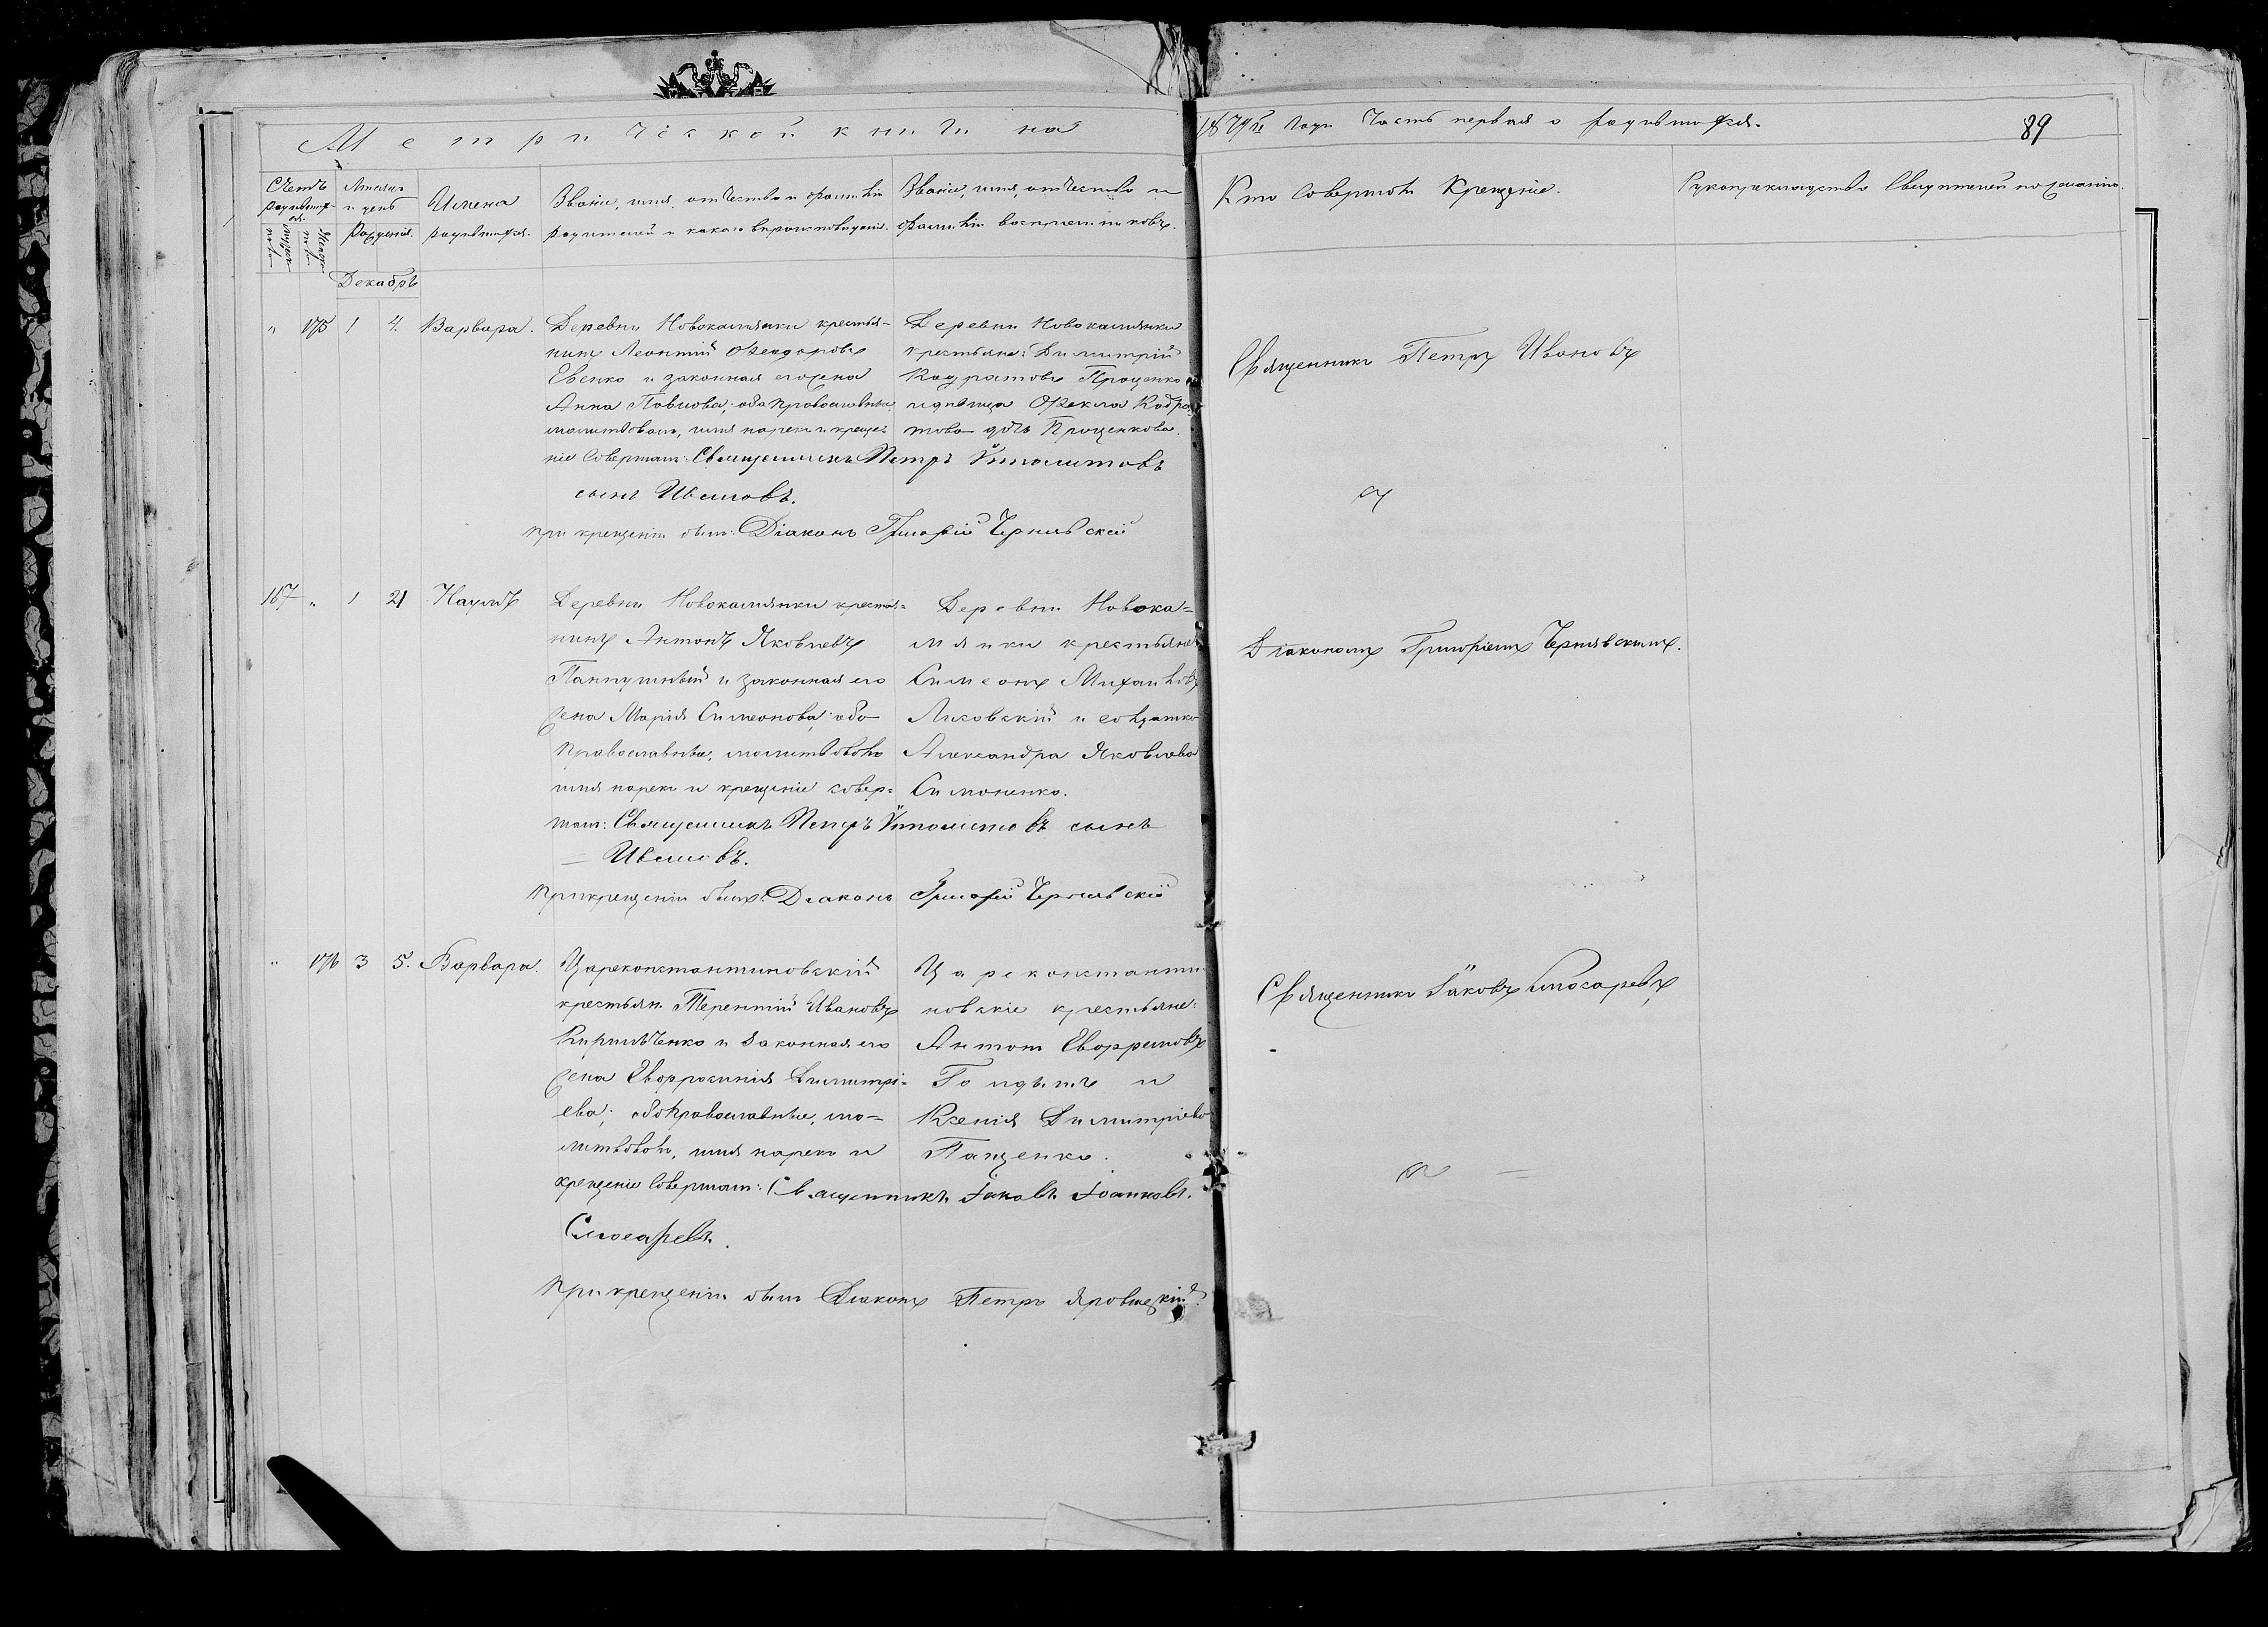 Метрической книги на
1879й годъ Часть первая о родившихся.
89
Счетъ родившихся.
Мѣсяцъ и день рожденія.
Имена родившихся.
Званіе, имя, отчество и фамилія
родителей и какого вѣроисповѣданія.
Званіе, имя, отчество и
фамилія воспріемниковъ.
Кто совершалъ Крещеніе.
Рукоприкладство свидѣтелей по желанію.
Мужеска пола
Женска пола
Декабрь
" 175 1 4. Варвара.
Деревни Новокамянки крестья-
нинъ Леонтій Феодоровъ
Евенко и законная его жена
Анна Павлова, оба православные
молитвовалъ, имя нарекъ и креще-
ніе совершалъ: Священникъ Петръ Ипполитовъ
сынъ Ивановъ.
при крещеніи былъ: Діаконъ Григорій Чернявскій
Деревни Новокамянки
крестьяне: Димитрій
Кодратовъ Проценко
и дѣвица Фекла Кодра-
това дочь Проценкова.
Священникъ Петръ Ивановъ
167 " 1 21 Наумъ
Деревни Новокамянки крестья=
нинъ Антонъ Яковлевъ
и законная его
жена Марія Симеонова, оба
православные, молитвовалъ
имя нарекъ и крещеніе совер=
шалъ: Священникъ Петръ Ипполитовъ сынъ
Ивановъ.
При крещеніи былъ: Діаконъ Григорій Чернявскій
Деревни Новока=
мянки крестьяне
Симеонъ Михаиловъ
Лисовскій и солдатка
Александра Яковлева
Симоненко.
Діакономъ Григоріемъ Чернявскимъ.
" 176 3 5. Варвара.
Цареконстантиновскій
крестьян. Терентій Ивановъ
Кирильченко и законная его
жена Евфросинія Димитрі=
ева; оба православные, мо-
литвовалъ, имя нарекъ и
крещеніе совершалъ: Священникъ Іаковъ Іоанновъ
Слюсаревъ.
При крещеніи былъ Діаконъ Петръ
Цареконстанти-
новскіе крестьяне:
Антонъ Евфремовъ
и
Ксенія Димитріева
Пащенко.
Священникъ Іаковъ Слюсаревъ